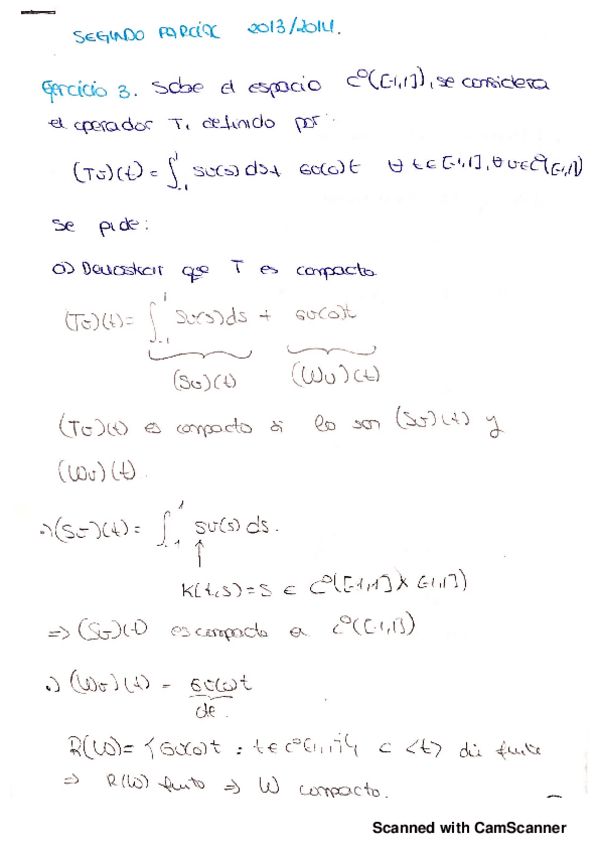 SEGUNDO PARCIAL 2013/2014.
Ejercicio 3. Sobre el espacio C⁰([-1,1]), se considera
el operador T, definido por:
(Tv)(t) = ∫₋₁¹ sv(s)ds + 6v(0)t ∀ t∈[-1,1], ∀ v∈C⁰([-1,1])
Se pide:
a) Demostrar que T es compacto.
(Tv)(t) = ∫₋₁¹ sv(s)ds + 6v(0)t
(Sv)(t) (Wv)(t)
(Tv)(t) es compacto si lo son (Sv)(t) y
(Wv)(t).
·) (Sv)(t) = ∫₋₁¹ sv(s) ds.
↑
K(t,s) = s ∈ C⁰([-1,1] x [-1,1])
=> (Sv)(t) es compacto en C⁰([-1,1])
·) (Wv)(t) = 6v(0)t
cte.
R(W) = {6v(0)t : t∈C⁰[-1,1]} ⊂ <t> dim finita
=> R(W) finito => W compacto.
Scanned with CamScanner